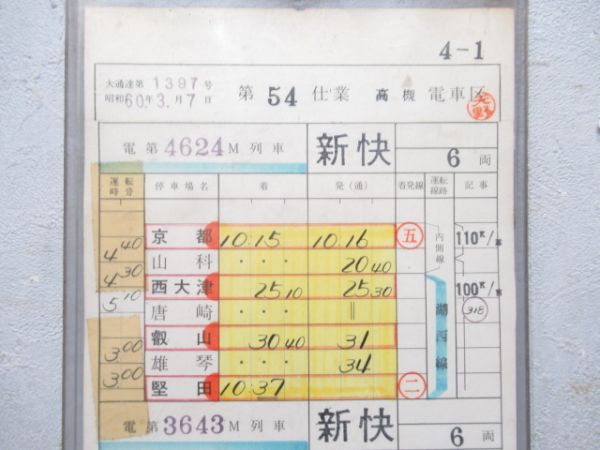 4-1
大通達第1397号
昭和60年3.月7日
第 54 仕業 高槻 電車区
電第4624M列車 新快 6両
運転時分 停車場名 着 発(通) 着発線 運転線路 記事
京都 10:15 10:16 五 内側線 110K/
4 40 山科 ・・・ 20 40
4 30 西大津 25 10 25 30 100K/
5 10 唐崎 ・・・ || 湖西線 318
叡山 30 40 31
3 00 雄琴 ・・・ 34
3 00 堅田 10:37 二
電第3643M列車 新快 6両